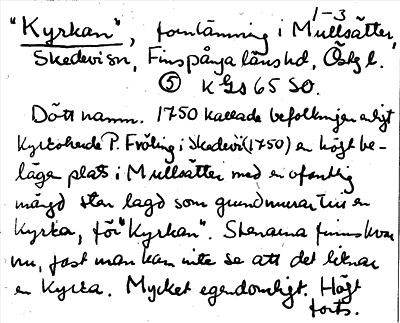 1-3
"Kyrkan", fornlämning i Mullsätter,
Skedevi sn, Finspånga länshd, Östg l.
5 K GS 65 SO.
Dött namn. 1750 kallade befolkningen enligt
kyrkoherde P. Fröling i Skedevi (1750) en högt be-
lägen plats i Mullsätter med en ofantlig
mängd sten lagd som grundmurar till en
kyrka, för "Kyrkan". Stenarna finns kvar
nu, fast man kan inte se att det liknar
en kyrka. Mycket egendomligt. Högt
forts.